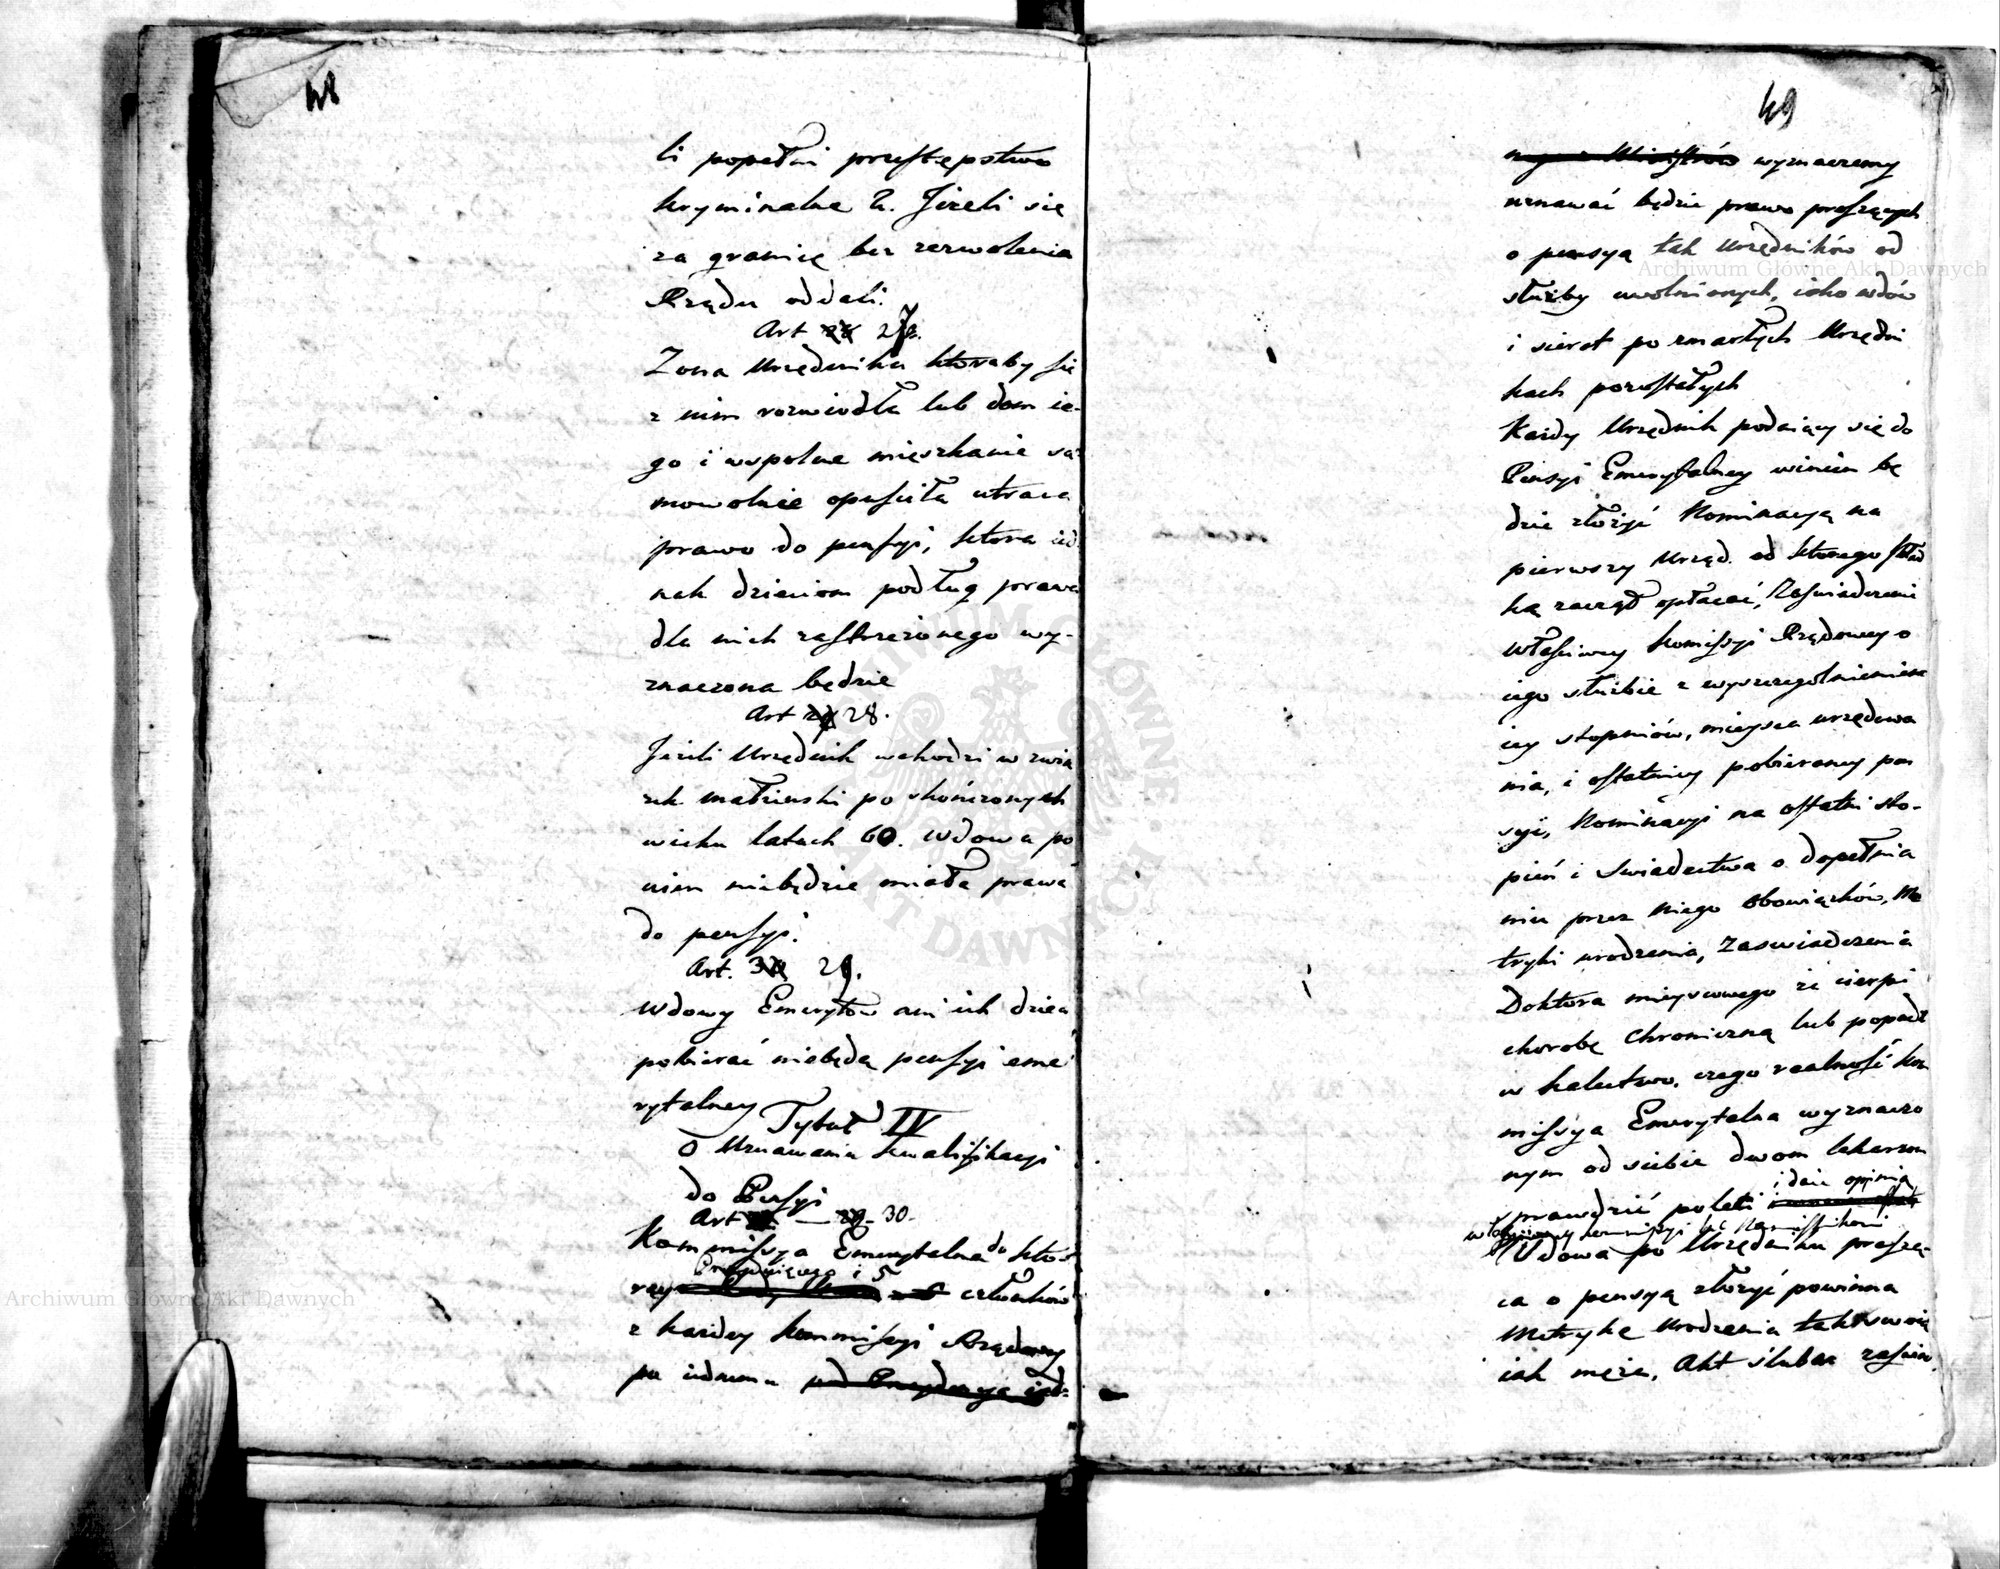 48
li popełni przestępstwo
kryminalne 2. Jeżeli się
za granicę bez zezwolenia
Rządu oddali.
Art 27.
Zona Urzędnika ktoraby się
z nim rozwiodła lub dom ie-
go i wspolne mięszkanie sa-
mowolnie opuściła utraca
prawo do pensyi, ktora ied
nak dzieciom podług prawa
dla nich zastrzeżonego wy-
znaczona będzie
Art 28.
Jeżeli Urzędnik wchodzi w zwią
zek małżeński po skończonych
wieku latach 60. Wdowa po
nim niebędzie miała prawa
do pensyi.
Art. 29.
Wdowy Emerytow ani ich dzieci
pobierać niebędą pensyi eme
rytalney
Tytuł IV
O Uznawaniu kwalifikacyi
do Pensyi
Art 30.
Kommissya Emerytalna do któ
rey i 5 członków
z każdey kommissyi Rządowey
po iednemu
49
wyznaczemy
uznawać będzie prawo proszących
o pensyą tak Urzędników od
służby uwolnionych, iako wdów
i sierot po zmarłych Urzędni
kach pozostałych
Każdy Urzędnik podaiący się do
Pensyi Emerytalney winien bę
dzie złożyć Nominacyą na
pierwszy Urząd od ktorego skład
kę zaczął opłacać, Zaświadczenie
właściwey kommissyi Rządowey o
iego służbie z wyszczegolnieniem
iey stopniów, mieysca urzędowa
nia, i ostatniey pobieraney pen
syi, Nominacyi na ostatni sto-
pień i Swiadectwa o dopełnia
niu przez niego obowiązków, Me
tryki urodzenia, Zaswiadczenia
Doktora mieyscowego że cierpi
chorobę chroniczną lub popadł
w kalectwo, czego realność kom
missya Emerytalna wyznaczo
nym od siebie dwom lekarzom
i daie opinią
sprawdzić poleci
Wdowa po Urzędniku proszą-
ca o pensyą złożyć powinna
Metrykę Urodzenia tak swoię
iak męża, Akt ślubu zaświa